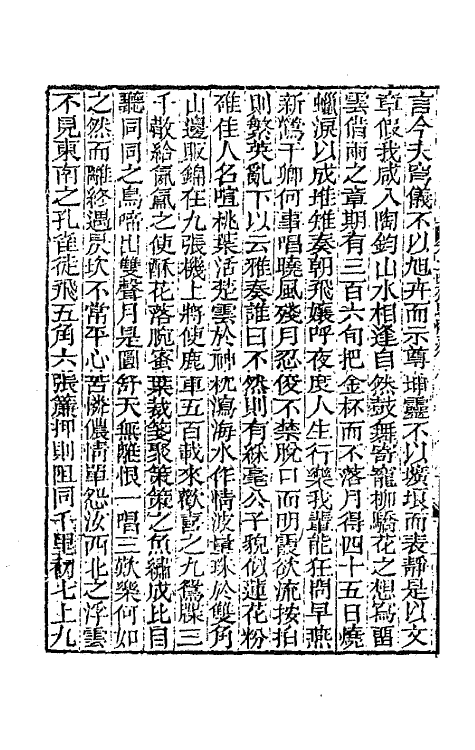 言今夫穹儀不以旭卉而示尊坤靈不以壙垠而表靜是以文
章假我咸入陶鈞山水相逢自然鼓舞寄寵柳驕花之想為留
雲借雨之章期有三百六旬把金杯而不落月得四十五日燒
蠟淚以成堆雉奏朝飛孃呼夜度人生行樂我輩能狂問早燕
新鶯干卿何事唱曉風殘月忍俊不禁脫口而明霞欲流按拍
則繁英亂下以云雅奏誰曰不然則有稣毫公子貌似蓮花粉
碓佳人名喧桃葉活楚雲於神枕瀉海水作情波量珠於雙角
山邊販錦在九張機上將使鹿車五百載來歡喜之九鴛牒三
千散給氤氳之使酥花落腕蜜葉裁箋聚策策之魚繡成比目
聽同同之鳥啼出雙聲月是圓舒天無離恨一唱三歎樂何如
之然而離終遇坎不常平心苦憐儂情單怨汝西北之浮雲
不見東南之孔雀徒飛五角六張簾押則阻同千里初七上九